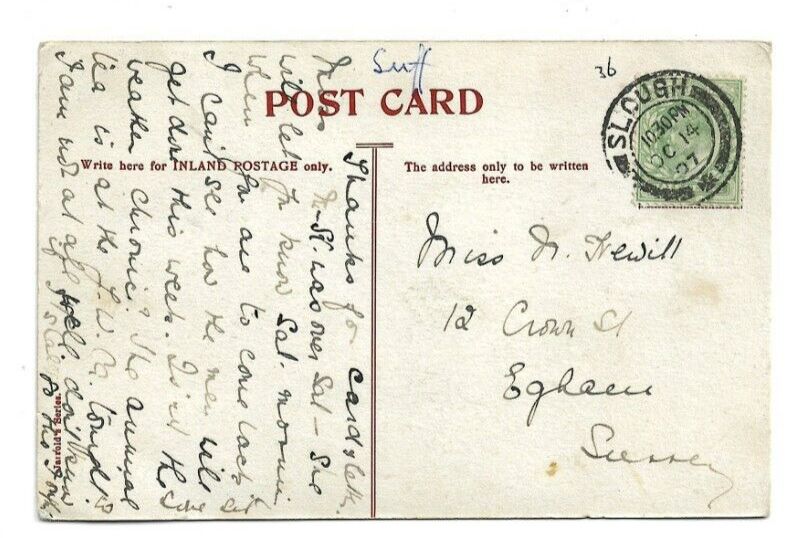 Suff
36
POST CARD
Write here for INLAND POSTAGE only.
The address only to be written
here.
SLOUGH
10.30PM
OC 14
07
Miss N. Hewill
12 Crown St
Egham
Surrey
Thanks for card & lett.
Mrs St. was over Sat – She
will let you know Sat. mornin
when you are to come back
I can't see how the men will
get done this week. Isn't the
weather chronic. The annual
tea is at the
I am not at all well don't know
Jarrold's Series.